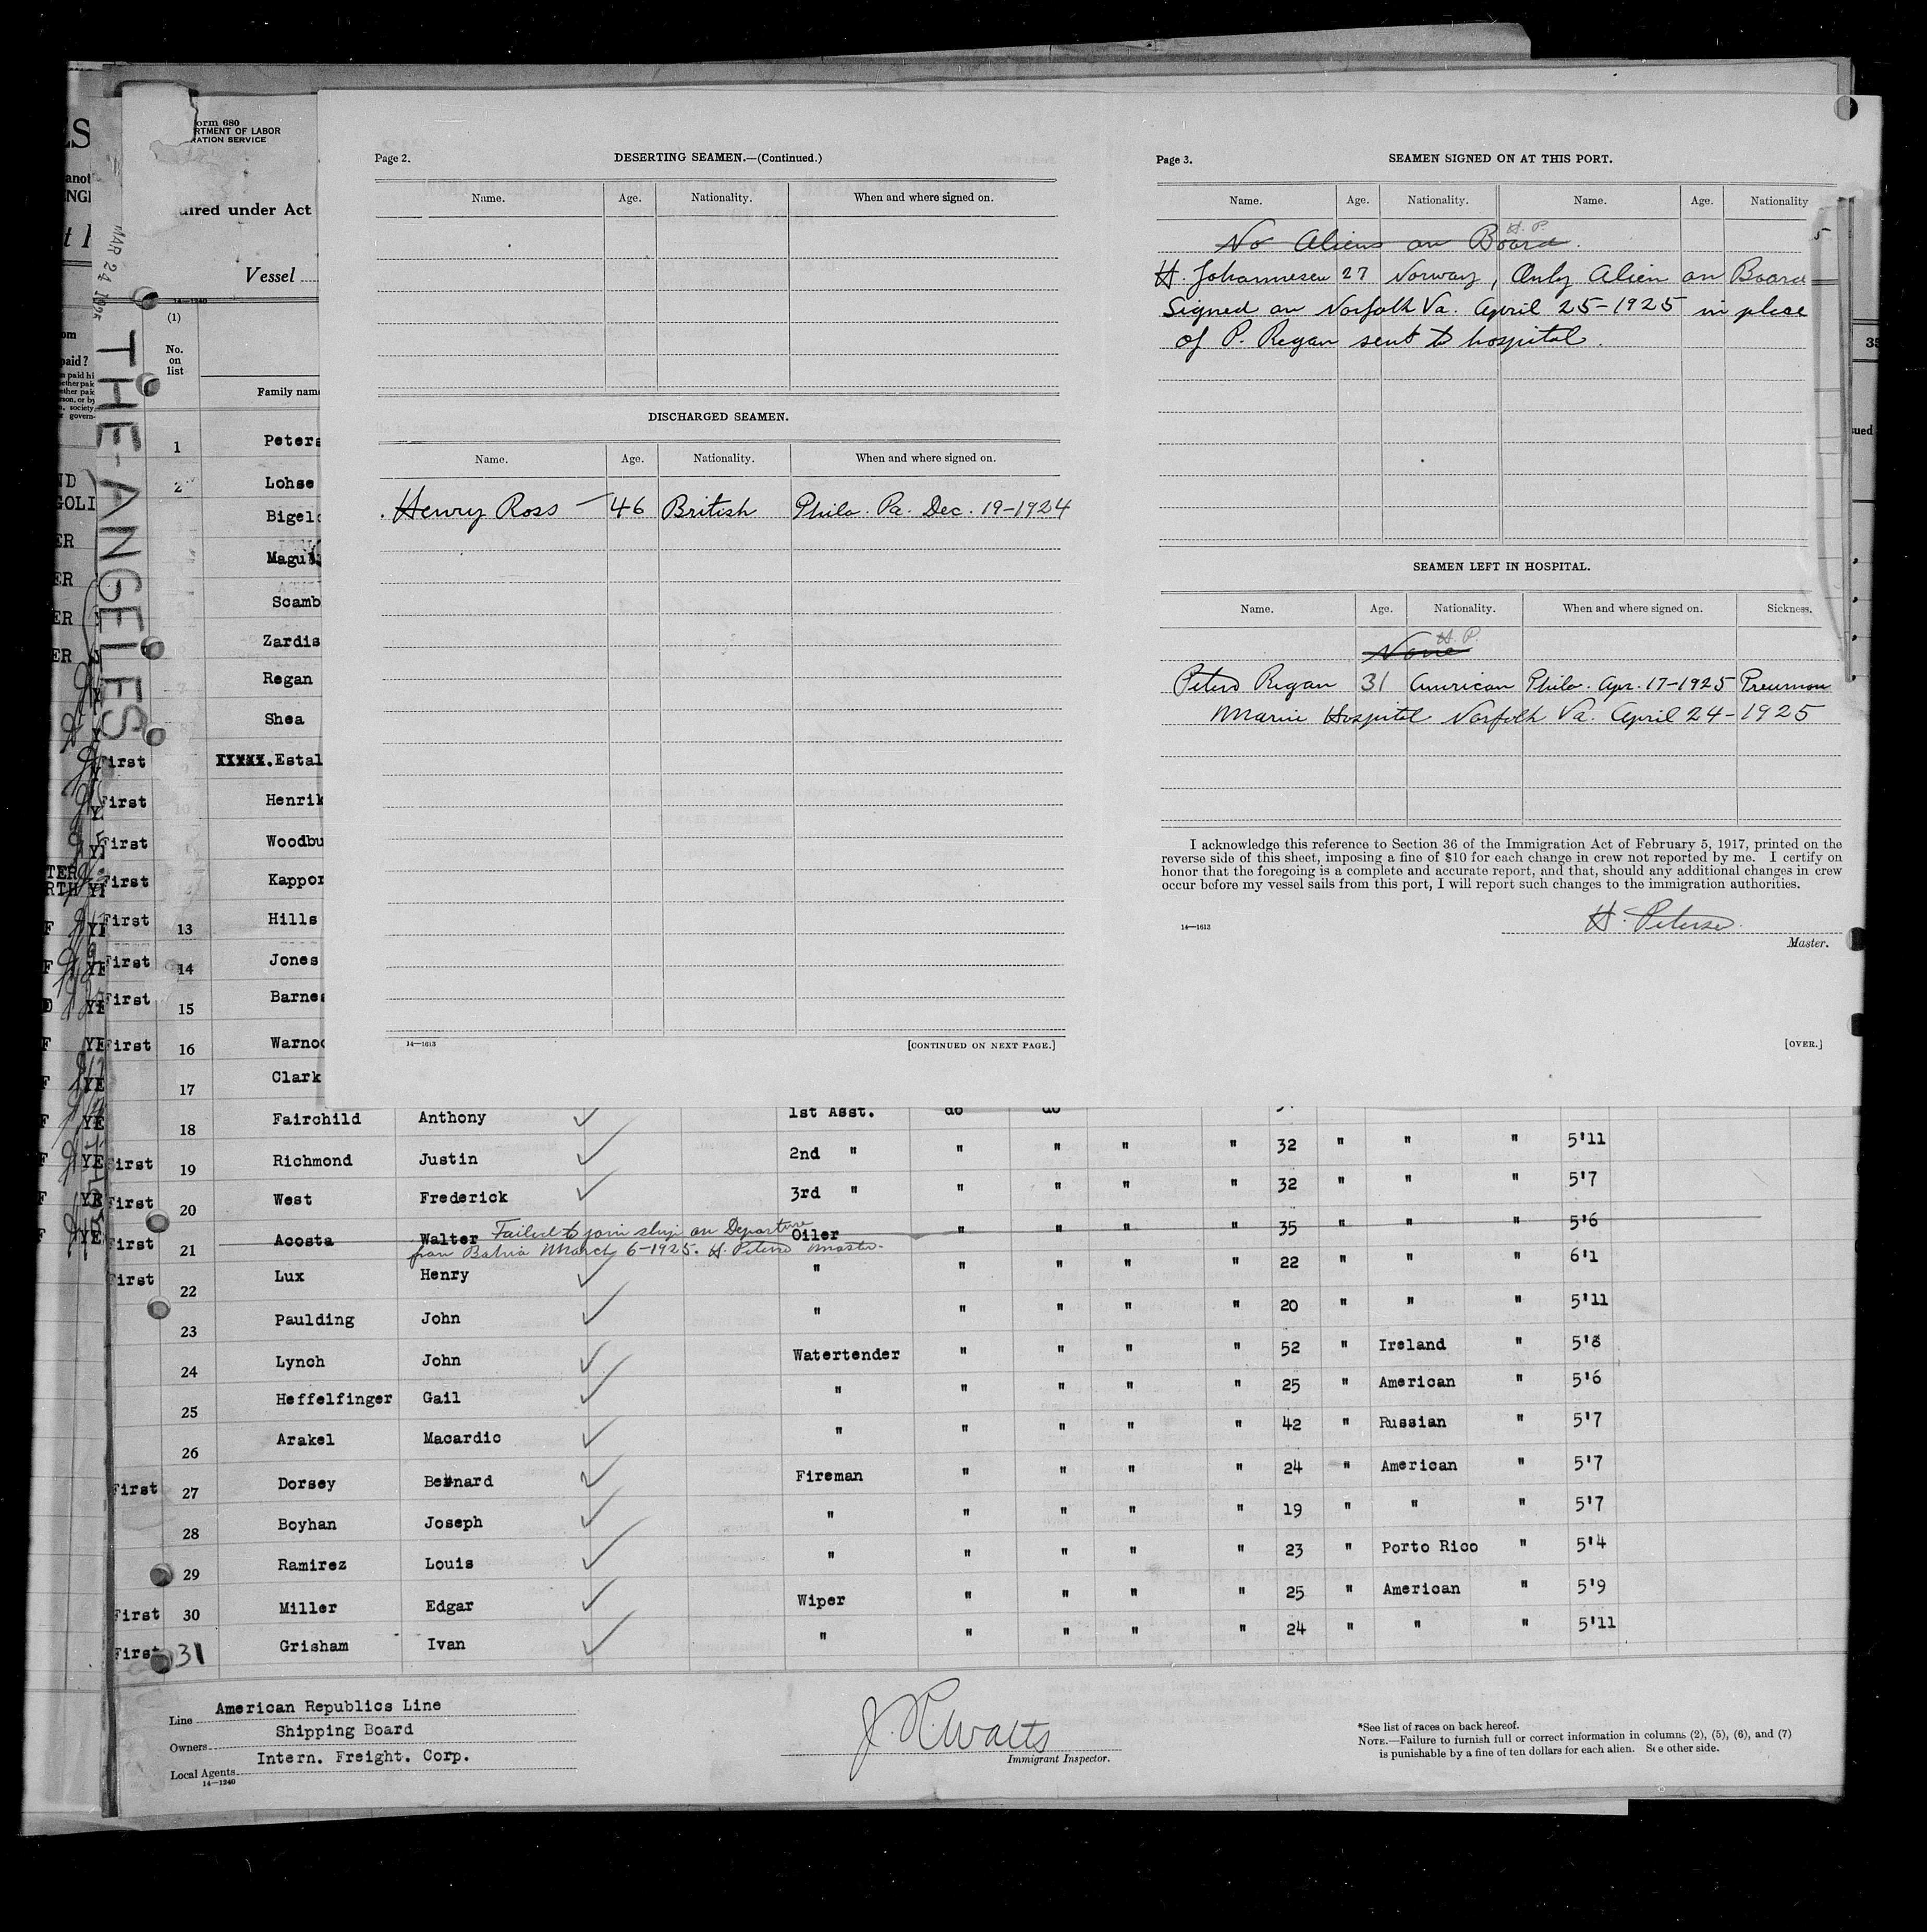 Page 2.
DESERTING SEAMEN.—(Continued.)
Name. Age. Nationality. When and where signed on.
DISCHARGED SEAMEN.
Name. Age. Nationality. When and where signed on.
Henry Ross — 46 British Phila. Pa. Dec. 19-1924
14—1613
[CONTINUED ON NEXT PAGE.]
Page 3.
SEAMEN SIGNED ON AT THIS PORT.
Name. Age. Nationality. Name. Age. Nationality
No Aliens on Board. H. P.
H. Johannesen 27 Norway, Only Alien on Board
Signed on Norfolk Va. April 25-1925 in place
of P. Regan sent to hospital.
SEAMEN LEFT IN HOSPITAL.
Name. Age. Nationality. When and where signed on. Sickness.
None H. P.
Peters Regan 31 American Phila. Apr. 17-1925 Pneumon
Marine Hospital Norfolk Va. April 24-1925
I acknowledge this reference to Section 36 of the Immigration Act of February 5, 1917, printed on the
reverse side of this sheet, imposing a fine of $10 for each change in crew not reported by me. I certify on
honor that the foregoing is a complete and accurate report, and that, should any additional changes in crew
occur before my vessel sails from this port, I will report such changes to the immigration authorities.
14—1613
Master.
[OVER.]
orm 680
RTMENT OF LABOR
RATION SERVICE
uired under Act
MAR 24 1925
Vessel
14—1240
THE-ANGELES
(1)
No.
on
list
Family name
1 Peters
2 Lohse
Bigelo
Magui
Scamb
Zardis
7 Regan
Shea
First XXXXX.Estal
First 10 Henrik
First Woodbu
First Kappor
First 13 Hills
First 14 Jones
First 15 Barnes
First 16 Warnoc
17 Clark
18 Fairchild Anthony 1st Asst. do do
First 19 Richmond Justin 2nd " " " " " 32 " " " 5'11
First 20 West Frederick 3rd " " " " " 32 " " " 5'7
First 21 Acosta Walter Oiler " " " " 35 " " " 5'6
Failed to join ship on Departure
from Bahia March 6-1925. H. Peters Master.
First 22 Lux Henry " " " " " 22 " " " 6'1
23 Paulding John " " " " " 20 " " " 5'11
24 Lynch John Watertender " " " " 52 " Ireland " 5'8
25 Heffelfinger Gail " " " " " 25 " American " 5'6
26 Arakel Macardic " " " " " 42 " Russian " 5'7
First 27 Dorsey Bernard Fireman " " " " 24 " American " 5'7
28 Boyhan Joseph " " " " " 19 " " " 5'7
29 Ramirez Louis " " " " " 23 " Porto Rico " 5'4
First 30 Miller Edgar Wiper " " " " 25 " American " 5'9
First 31 Grisham Ivan " " " " " 24 " " " 5'11
Line American Republics Line
Owners Shipping Board
Local Agents Intern. Freight. Corp.
14—1240
J. R. Watts
Immigrant Inspector.
*See list of races on back hereof.
NOTE.—Failure to furnish full or correct information in columns (2), (5), (6), and (7)
is punishable by a fine of ten dollars for each alien. See other side.